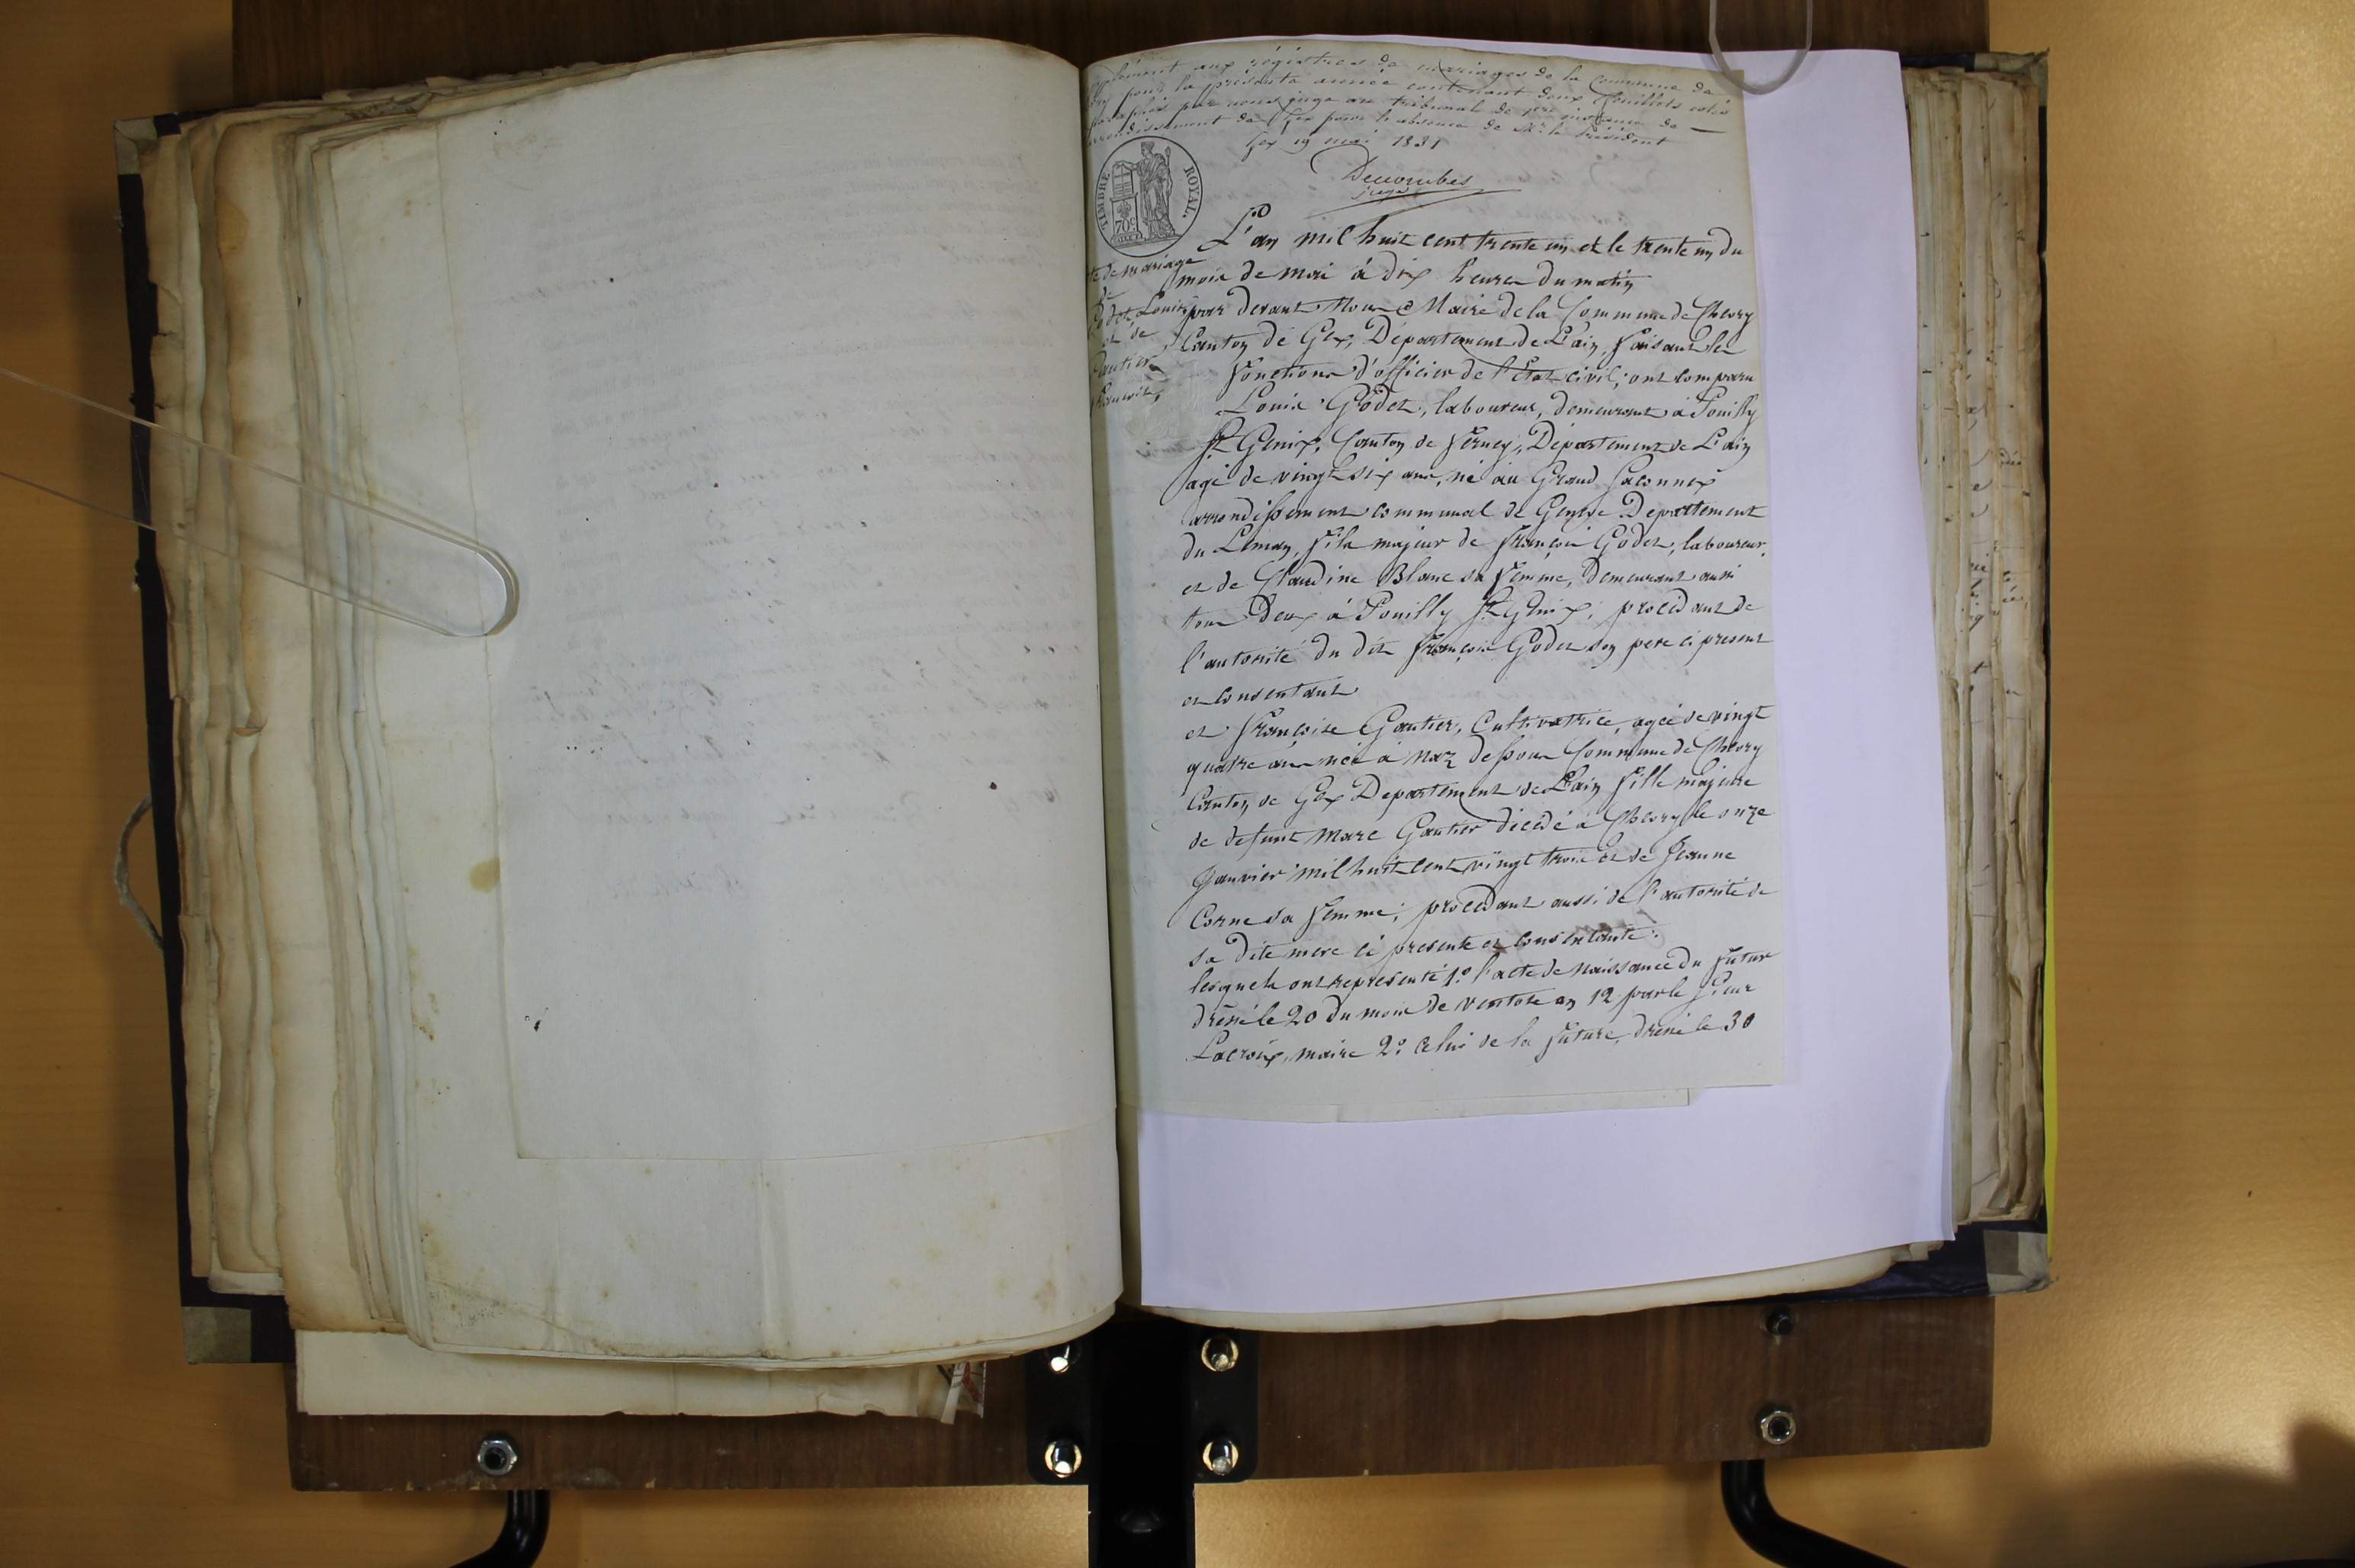 aux régistres de mariages de la Commune de
pour la présente année contenant deux feuillets cotés
paraphés par nous juge au tribunal de 1ere instance de
arrondissement de Gex pour l'absence de Mr. le Président
Gex 19 mai 1831
Decombes
juge
TIMBRE ROYAL.
70c
L'an mil huit cent trente un et le trente un du
te de mariage
de
Godet Louis
et de
Gautier
mois de mai à dix heures du matin
par devant Nous Maire de la Commune de Chevry
Canton de Gex, Département de L'ain, faisant les
fonctions d'officier de l'état civil; ont comparu
Louis Godet, laboureur, demeurant à Pouilly
St. Genix, Canton de Ferney, Département de L'ain
agé de vingt six ans, né au Grand Saconnex
arrondissement communal de Genève Departement
du Leman, fils majeur de françois Godet, laboureur,
et de Claudine Blanc sa femme, demeurant aussi
tous Deux à Pouilly St. Genix; procédant de
l'autorité du dit françois Godet son pere ci present
et consentant
et françoise Gautier, Cultivatrice, agée de vingt
quatre ans née à Naz dessous Commune de Chevry
Canton de Gex Departement de L'ain fille majeure
de defunt Marc Gautier décédé à Chevry le onze
Janvier mil huit cent vingt trois et de Jeanne
Corne sa femme; procédant aussi de l'autorité de
sa dite mere ci presente et consentante.
lesquels ont représenté 1o. l'acte de naissance du futur
dréssé le 20 du mois de ventose an 12 par le sieur
Lacroix, maire 2o. celui de la future, dréssé le 30